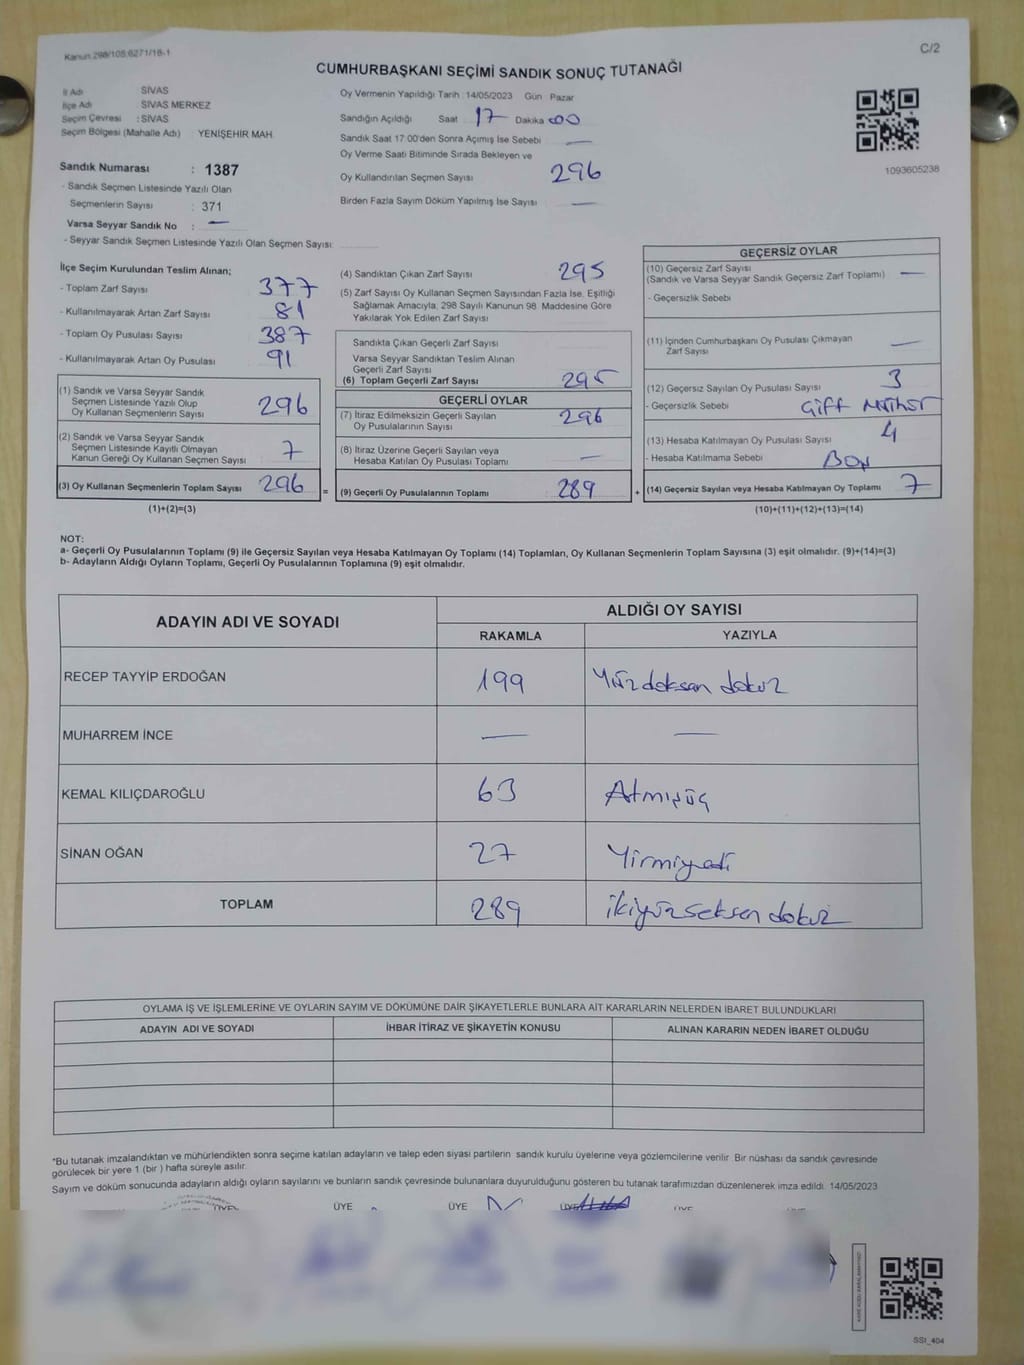 Kanun:298/105:6271/18-1
C/2
CUMHURBAŞKANI SEÇİMİ SANDIK SONUÇ TUTANAĞI
İl Adı SİVAS
İlçe Adı SİVAS MERKEZ
Seçim Çevresi : SİVAS
Seçim Bölgesi (Mahalle Adı) : YENİŞEHİR MAH.
Sandık Numarası : 1387
- Sandık Seçmen Listesinde Yazılı Olan
Seçmenlerin Sayısı : 371
Varsa Seyyar Sandık No : —
- Seyyar Sandık Seçmen Listesinde Yazılı Olan Seçmen Sayısı:
Oy Vermenin Yapıldığı Tarih : 14/05/2023 Gün Pazar
Sandığın Açıldığı Saat 17 Dakika 00
Sandık Saat 17:00'den Sonra Açımış İse Sebebi —
Oy Verme Saati Bitiminde Sırada Bekleyen ve
Oy Kullandırılan Seçmen Sayısı 296
Birden Fazla Sayım Döküm Yapılmış İse Sayısı —
1093605238
İlçe Seçim Kurulundan Teslim Alınan;
- Toplam Zarf Sayısı 377
- Kullanılmayarak Artan Zarf Sayısı 81
- Toplam Oy Pusulası Sayısı 387
- Kullanılmayarak Artan Oy Pusulası 91
(1) Sandık ve Varsa Seyyar Sandık
Seçmen Listesinde Yazılı Olup
Oy Kullanan Seçmenlerin Sayısı 296
(2) Sandık ve Varsa Seyyar Sandık
Seçmen Listesinde Kayıtlı Olmayan
Kanun Gereği Oy Kullanan Seçmen Sayısı 7
(3) Oy Kullanan Seçmenlerin Toplam Sayısı 296 =
(1)+(2)=(3)
(4) Sandıktan Çıkan Zarf Sayısı 295
(5) Zarf Sayısı Oy Kullanan Seçmen Sayısından Fazla İse, Eşitliği
Sağlamak Amacıyla, 298 Sayılı Kanunun 98. Maddesine Göre
Yakılarak Yok Edilen Zarf Sayısı
Sandıkta Çıkan Geçerli Zarf Sayısı
Varsa Seyyar Sandıktan Teslim Alınan
Geçerli Zarf Sayısı
(6) Toplam Geçerli Zarf Sayısı 295
GEÇERLİ OYLAR
(7) İtiraz Edilmeksizin Geçerli Sayılan
Oy Pusulalarının Sayısı 296
(8) İtiraz Üzerine Geçerli Sayılan veya
Hesaba Katılan Oy Pusulası Toplamı —
(9) Geçerli Oy Pusulalarının Toplamı 289 +
GEÇERSİZ OYLAR
(10) Geçersiz Zarf Sayısı
(Sandık ve Varsa Seyyar Sandık Geçersiz Zarf Toplamı) —
- Geçersizlik Sebebi
(11) İçinden Cumhurbaşkanı Oy Pusulası Çıkmayan
Zarf Sayısı —
(12) Geçersiz Sayılan Oy Pusulası Sayısı 3
- Geçersizlik Sebebi Çift
(13) Hesaba Katılmayan Oy Pusulası Sayısı 4
- Hesaba Katılmama Sebebi Boş
(14) Geçersiz Sayılan veya Hesaba Katılmayan Oy Toplamı 7
(10)+(11)+(12)+(13)=(14)
NOT:
a- Geçerli Oy Pusulalarının Toplamı (9) ile Geçersiz Sayılan veya Hesaba Katılmayan Oy Toplamı (14) Toplamları, Oy Kullanan Seçmenlerin Toplam Sayısına (3) eşit olmalıdır. (9)+(14)=(3)
b- Adayların Aldığı Oyların Toplamı, Geçerli Oy Pusulalarının Toplamına (9) eşit olmalıdır.
ADAYIN ADI VE SOYADI ALDIĞI OY SAYISI
RAKAMLA YAZIYLA
RECEP TAYYİP ERDOĞAN 199 Yüzdoksan dokuz
MUHARREM İNCE — —
KEMAL KILIÇDAROĞLU 63 Atmışüç
SİNAN OĞAN 27 Yirmiyedi
TOPLAM 289 ikiyüzseksen dokuz
OYLAMA İŞ VE İŞLEMLERİNE VE OYLARIN SAYIM VE DÖKÜMÜNE DAİR ŞİKAYETLERLE BUNLARA AİT KARARLARIN NELERDEN İBARET BULUNDUKLARI
ADAYIN ADI VE SOYADI İHBAR İTİRAZ VE ŞİKAYETİN KONUSU ALINAN KARARIN NEDEN İBARET OLDUĞU
*Bu tutanak imzalandıktan ve mühürlendikten sonra seçime katılan adayların ve talep eden siyasi partilerin sandık kurulu üyelerine veya gözlemcilerine verilir. Bir nüshası da sandık çevresinde
görülecek bir yere 1 (bir ) hafta süreyle asılır.
Sayım ve döküm sonucunda adayların aldığı oyların sayılarını ve bunların sandık çevresinde bulunanlara duyurulduğunu gösteren bu tutanak tarafımızdan düzenlenerek imza edildi. 14/05/2023
ÜYE ÜYE ÜYE
SSI_404